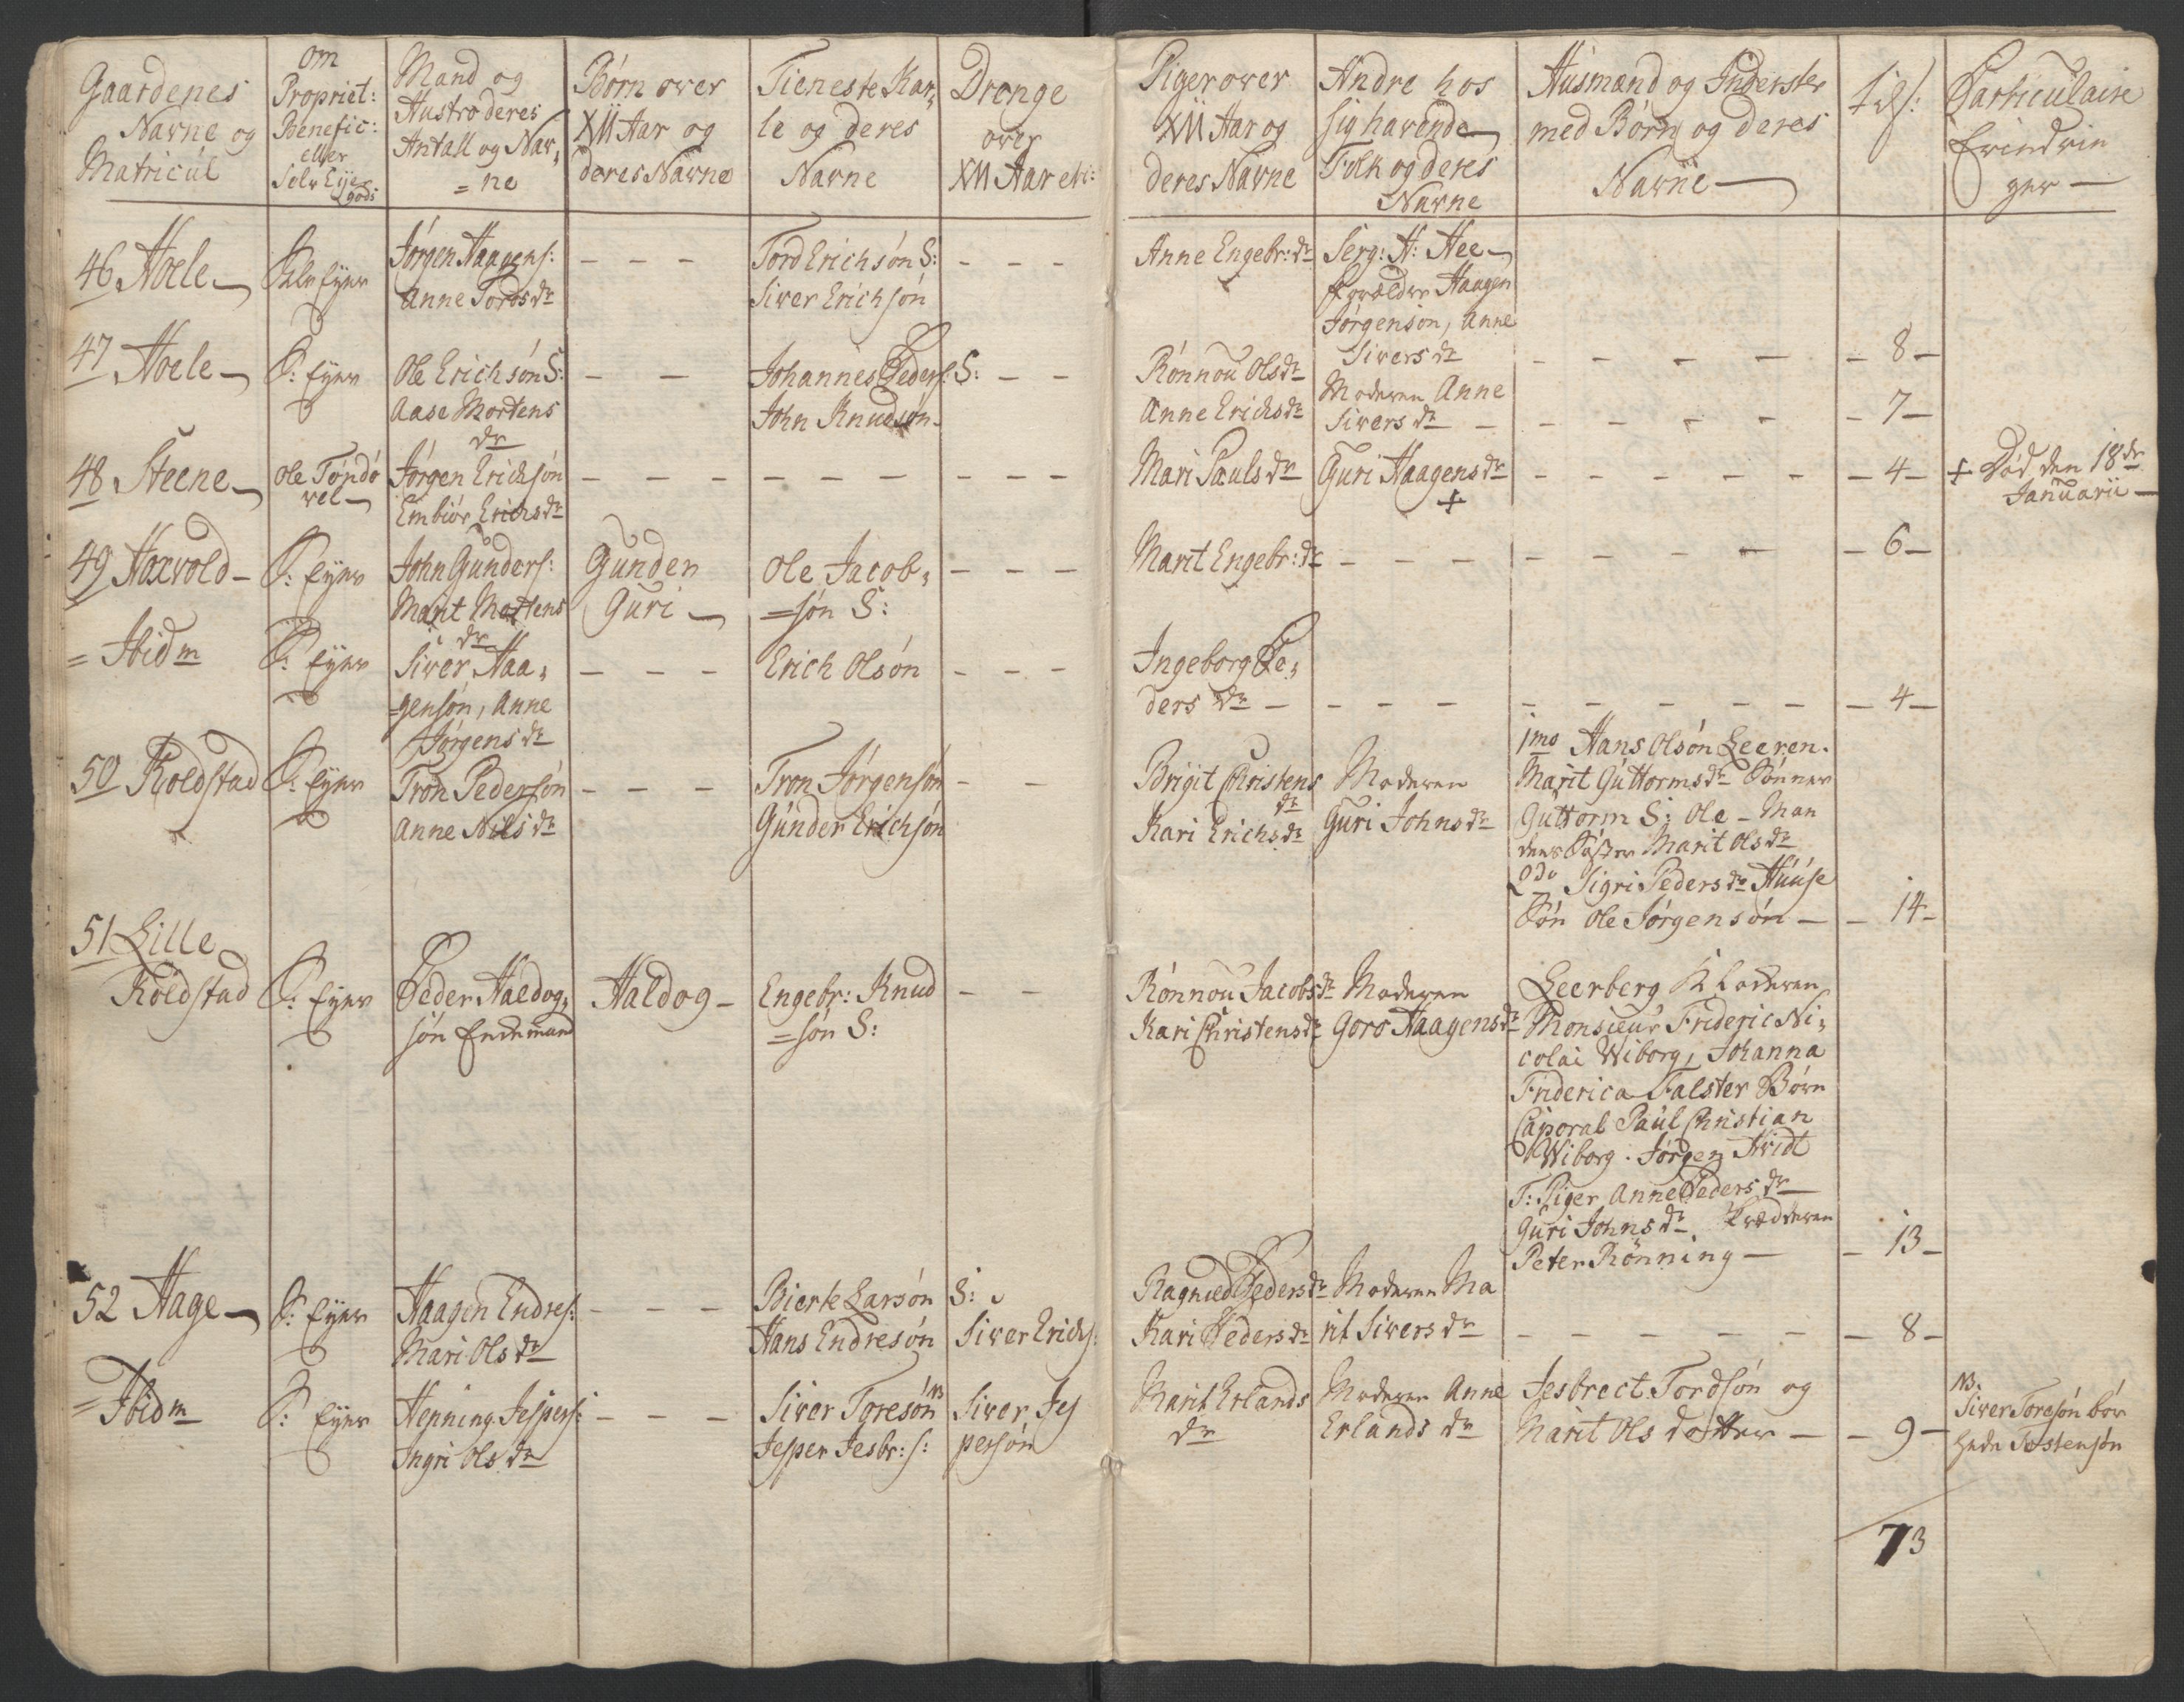 Gaardenes
Navne og
Matricul
om
Propriet:
Benefic:
eller
Selv Eÿer
gods:
Mand og
Hustro deres
Antall og Nav,
=ne
Børn over
XII Aar og
deres Navne
Tieneste Kar,
le og deres
Navne
Drenge
over
XII Aar etc:
Piger over
XII Aar og
deres Navne
Andre hos
sig havende
Folk og deres
Navne
Husmænd og Inderster
med Børn og deres
Navne
Particulaire
Erindrin
ger
46 Hoele
Selv Eÿer
Jørgen Haagens:
Anne Tordsdr
- - -
Tord Erichsøn S:
Siver Erichsøn
- - -
Anne Engebr: dr
Serg: H: Hee
Forældre Haagen
Jørgensøn, Anne
Siversdr
- - - - - 8 -
47 Hoele
S: Eÿer
Ole Erichsøn S:
Aase Mortens
dr
- -
Johannes Peders: S:
John Knudsøn
- -
Rønnou Olsdr
Anne Erichsdr
Moderen Anne
Siversdr -
- - - - - 7 -
48 Steene
Ole Tøndø
vel
Jørgen Erichsøn
Embiør Erichsdr
- - - - - - - - -
Mari Paulsdr
Guri Haagensdr
+
- - - - - - 4 -
+ Død den 18de
Januarii
49 Haxvold
S: Eÿer
John Gunders:
Marit Mortens
dr
Gunder
Guri
Ole Jacob,
=søn S:
- - -
Marit Engebr: dr
- - - - - - - - 6 -
= Ibidm
S: Eÿer
Siver Haa,
=gensøn, Anne
Jørgensdr
- - -
Erich Olsøn
- - -
Ingeborg Pe,
dersdr -
- - - - - - - - - - 4 -
50 Koldstad
S: Eÿer
Tron Pedersøn
Anne Nilsdr
- - -
Tron Jørgensøn
Gunder Erichsøn
- -
Brigit Christens
dr
Kari Erichsdr
Moderen
Guri Johnsdr
1mo Hans Olsøn Leeren.
Marit Guttormsdr Sønner
Guttorm S: Ole - Man
dens Søster Marit Olsdr
2do Sigri Pedersdr Huuse
Søn Ole Jørgensøn - - 14 -
51 Lille
Koldstad
S: Eÿer
Peder Haldog,
søn Enckemand
Haldog -
Engebr: Knud
=søn S:
- -
Rønnou Jacobsdr
Kari Christensdr
Moderen
Goro Haagensdr
Leerberg
Monsieur Frideric Ni,
colai Wiborg, Johanna
Friderica Falster Børn
Caporal Paul Christian
Wiborg. Jørgen Hvidt
T: Piger Anne Pedersdr
Guri Johnsdr
Peter Rønning - - 13 -
52 Hage
S: Eÿer
Haagen Endres:
Mari Olsdr
- - -
Bierte Larsøn S:
Hans Endresøn
Siver Erichs:
Ragnied Pedersdr
Kari Pedersdr
Moderen Ma
rit Siversdr
- - - - - - - 8 -
= Ibidm
S: Eÿer
Henning Jespers:
Ingri Olsdr
- - -
Siver Toresøn NB
Jesper Jesbr: s:
Siver Jes
persøn
Marit Erlands
dr
Moderen Anne
Erlandsdr
Jesbrect Tordsøn og
Marit Ols dotter - - 9 -
NB.
Siver Toresøn bør
hede Tostensøn
73